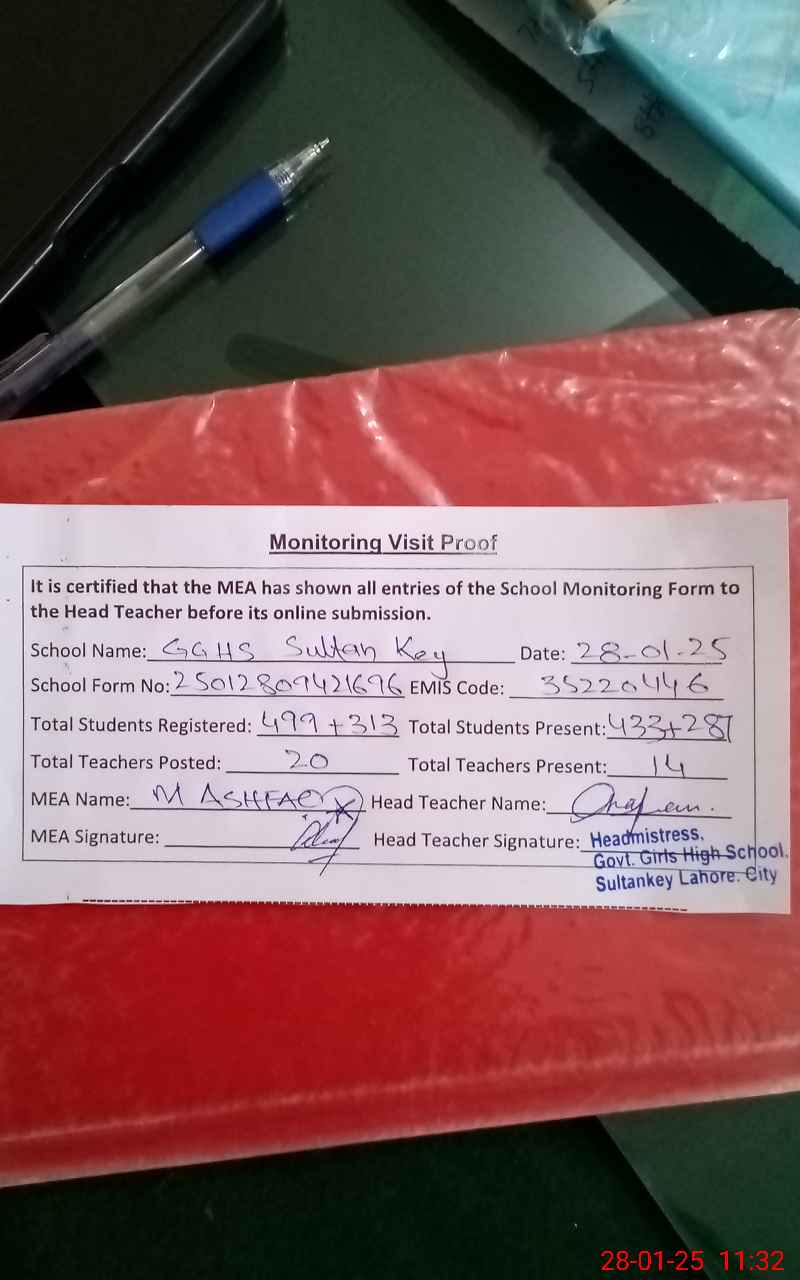 Monitoring Visit Proof
It is certified that the MEA has shown all entries of the School Monitoring Form to
the Head Teacher before its online submission.
School Name: GGHS Sultan Key Date: 28-01-25
School Form No: 25012809421696 EMIS Code: 35220446
Total Students Registered: 499+313 Total Students Present: 433+287
Total Teachers Posted: 20 Total Teachers Present: 14
MEA Name: M ASHFAQ Head Teacher Name:
MEA Signature: Head Teacher Signature: Headmistress.
Govt. Girls High School.
Sultankey Lahore. City
28-01-25 11:32